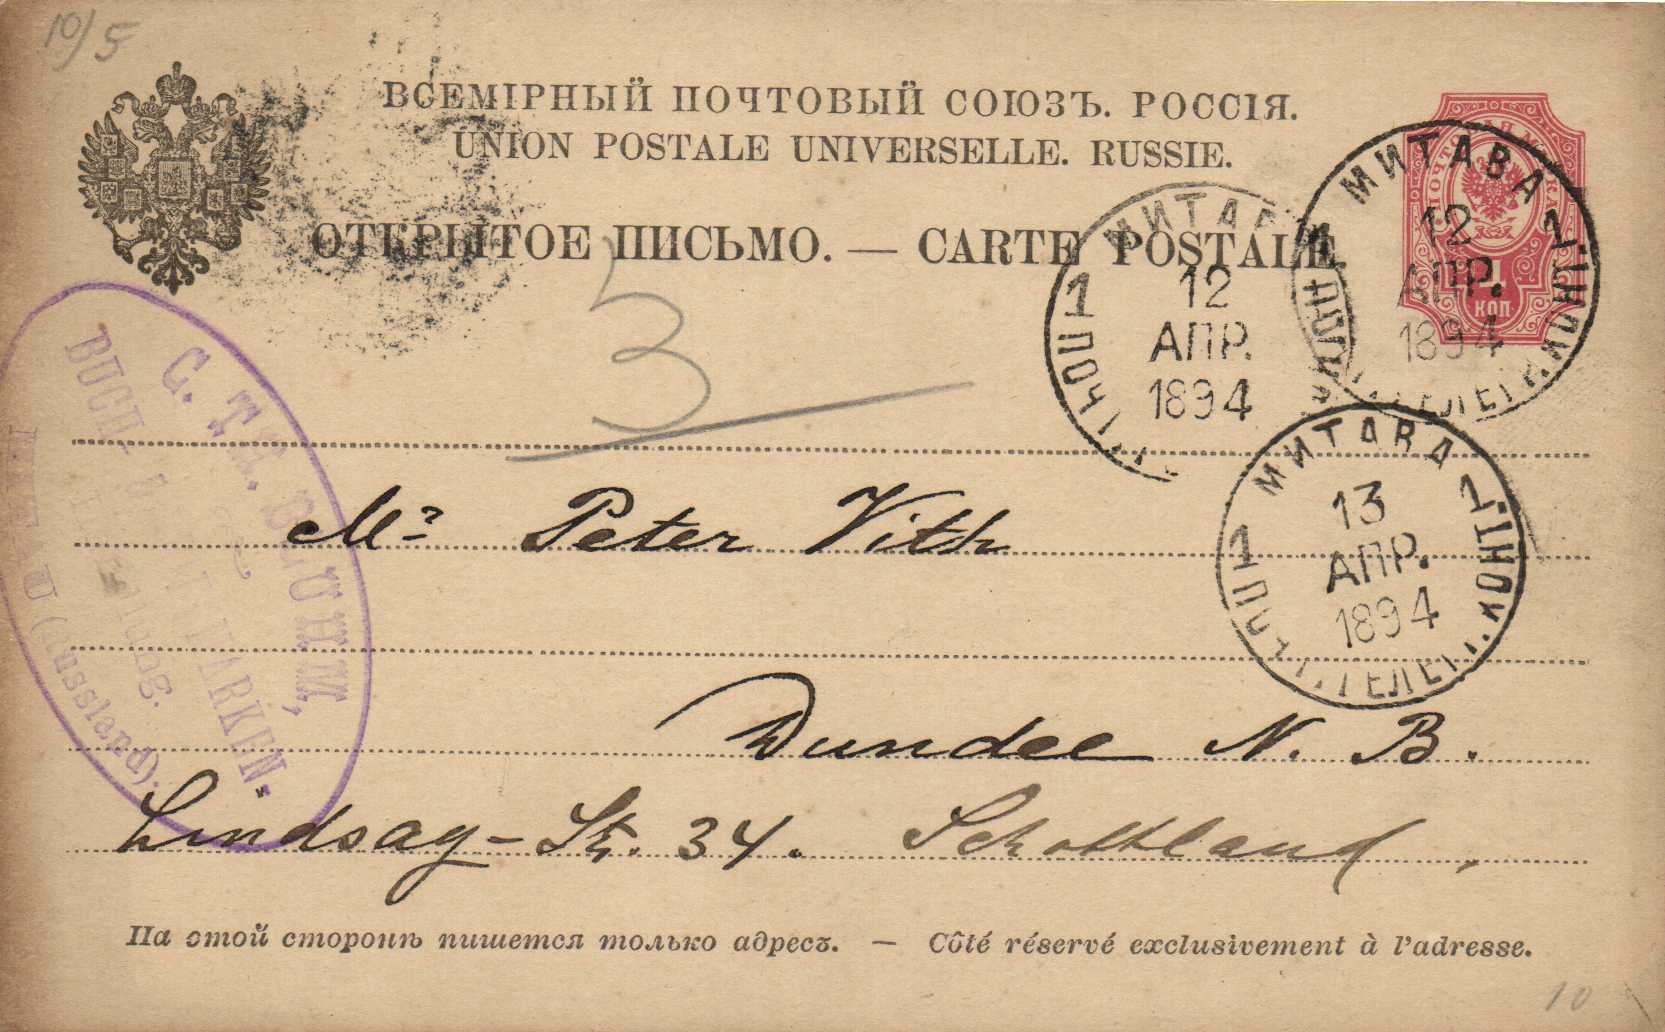 10/5
ВСЕМІРНЫЙ ПОЧТОВЫЙ СОЮЗЪ. РОССІЯ.
UNION POSTALE UNIVERSELLE. RUSSIE.
ОТКРЫТОЕ ПИСЬМО. — CARTE POSTALE.
КОП
МИТАВА
12
АПР.
1894
МИТАВА
1
12
АПР.
1894
МИТАВА
1
13
АПР.
1894
3
BUCH-
MARKEN.
(Russland).
Mr. Peter Vith
Dundee N. B.
Lindsay-St. 34. Schottland,
На этой сторонѣ пишется только адресъ. — Côté réservé exclusivement à l'adresse.
10